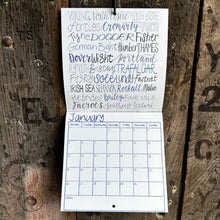 VIKING
Forties Cromarty
Tyne DOGGER Fisher
German Bight Humber THAMES
Dover Wight Portland
Biscay TRAFALGAR
FitzRoy Sole Lundy Fastnet
IRISH SEA SHANNON Rockall Malin
Hebrides Bailey FAIR ISLE
Faeroes Southeast Iceland
January